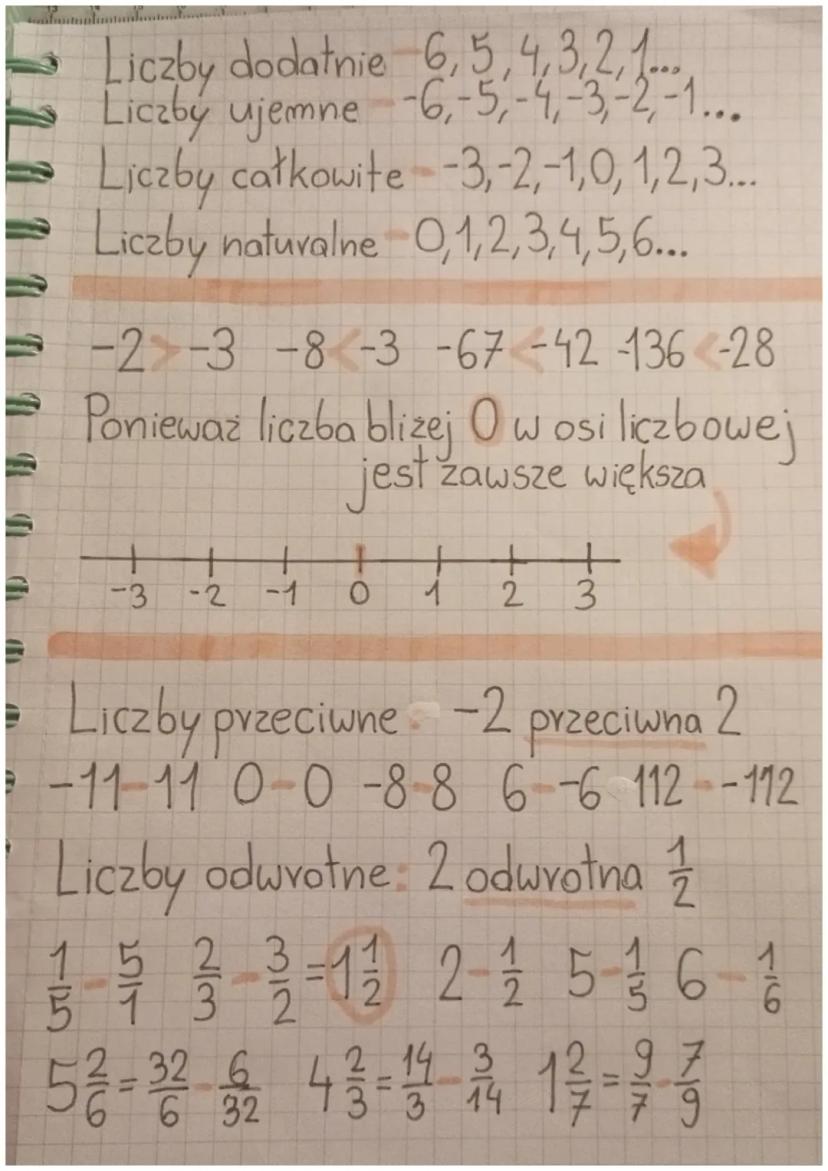 Liczby dodatnie - 6, 5, 4, 3, 2, 1...
Liczby ujemne - -6, -5, -4, -3, -2, -1...
Liczby całkowite - -3, -2, -1, 0, 1, 2, 3...
Liczby naturalne - 0, 1, 2, 3, 4, 5, 6...
-2 > -3 -8 < -3 -67 < -42 -136 < -28
Ponieważ liczba bliżej 0 w osi liczbowej
jest zawsze większa
-3 -2 -1 0 1 2 3
Liczby przeciwne: -2 przeciwna 2
-11 - 11 0 - 0 -8 - 8 6 - -6 112 - -112
Liczby odwrotne: 2 odwrotna 1/2
1/5 - 5/1 2/3 - 3/2 = 1 1/2 2 - 1/2 5 - 1/5 6 - 1/6
5 2/6 = 32/6 - 6/32 4 2/3 = 14/3 - 3/14 1 2/7 = 9/7 - 7/9